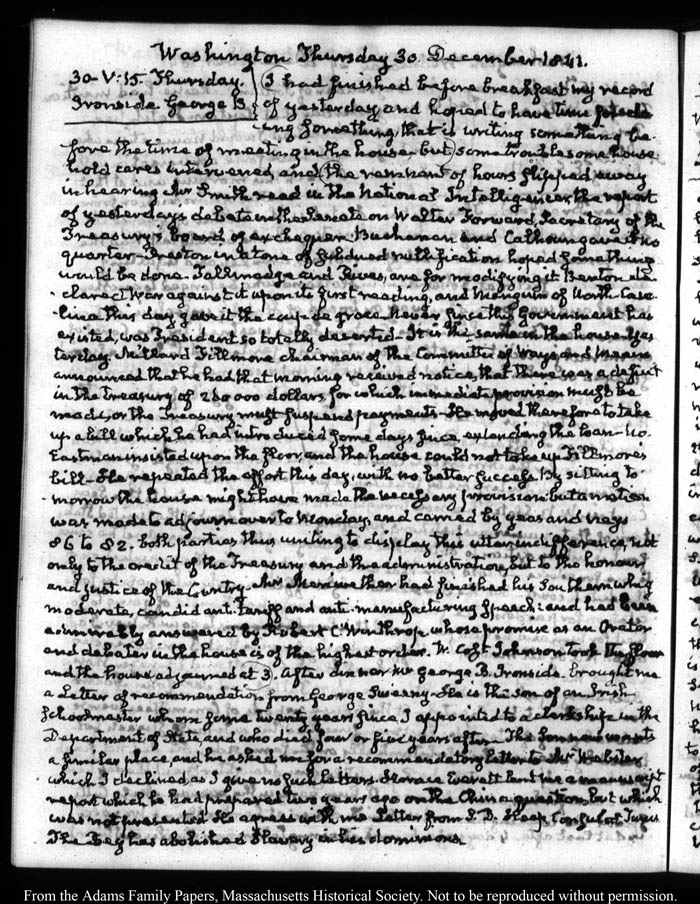 Washington Thursday 30. December 1841.
30. V:15. Thursday.
Ironside George B
I had finished before breakfast my record
of yesterday and hoped to have time
ing something, that is writing something be-
fore the time of meeting in the house but some troublesome house-
hold cares intervened, and the remnant of hours slipped away
in hearing Mr Smith read in the National Intelligencer, the report
of yesterday's debate in the Senate on Walter Forward, Secretary of the
Treasury's board of exchequer. Buchanan and Calhoun gave it no
quarter. Preston in a tone of subdued nullification hoped something
would be done. Tallmadge and Rives, are for modifying it Benton de-
clared War against it upon its first reading, and Mangum of North Caro-
lina this day gave it the coup de grace. Never since this Government has
existed, was President so totally deserted. It is the same in the house. Yes-
terday, Millard Fillmore chairman of the Committee of Ways and Means
announced that he had that morning received notice, that there was a deficit
in the Treasury of 200 000 dollars, for which immediate provision must be
made, or the Treasury must suspend payments. He moved therefore to take
up a bill which he had introduced some days since, extending the loan. No.
Eastman insisted upon the floor, and the house could not take up Fillmore's
bill. He repeated the effort this day, with no better success. By sitting to-
morrow the house might have made the necessary provision but a motion
was made to adjourn over to Monday, and carried by yeas and nays
86 to 82. both parties thus uniting to display this utter indifference, not
only to the credit of the Treasury and the administration, but to the honour
and justice of the Country. Mr Meriwether had finished his Southern whig
moderate, candid anti-tariff and anti-manufacturing speech: and had been
admirably answered by Robert C. Winthrop, whose promise as an Orator
and debater in the house is of the highest order. W. Cost Johnson took the floor
and the house adjourned at 3. After dinner Mr George B. Ironside. brought me
a Letter of recommendation from George Sweeny. He is the son of an Irish
Schoolmaster whom some twenty years since I appointed to a clerkship in the
Department of State, and who died four or five years after. The son now wants
a similar place, and he asked me for a recommendatory letter to Mr Webster
which I declined, as I give no such letters. Horace Everett lent me a manuscript
report which he had prepared two years ago on the China question, but which
was not presented. He agrees with me Letter from S. D. Heap, Consul at Tunis
The Bey has abolished Slavery in his dominions.
From the Adams Family Papers, Massachusetts Historical Society. Not to be reproduced without permission.